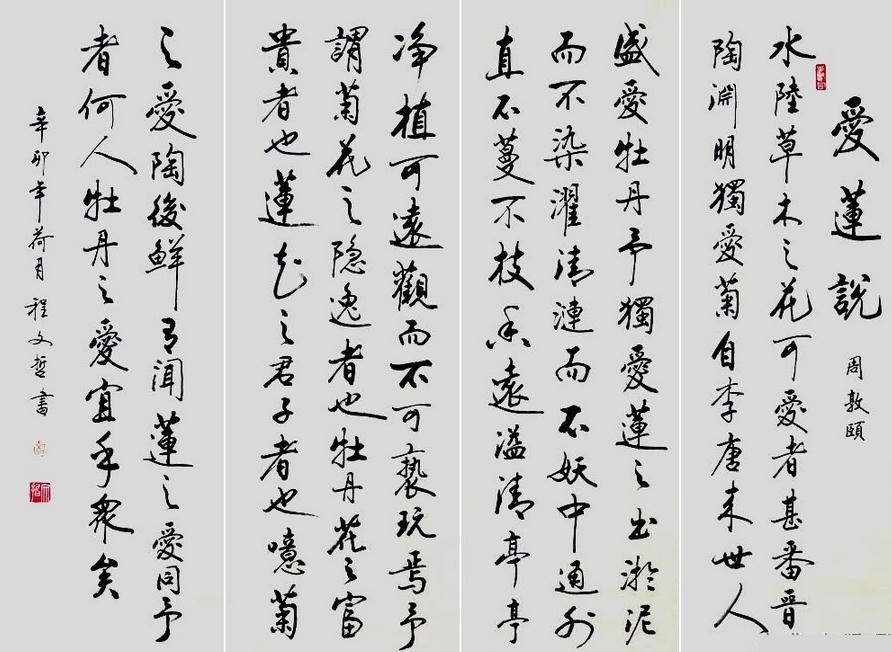 愛蓮說
周敦頤
水陸草木之花可愛者甚番晋
陶淵明獨愛菊自李唐来世人
盛愛牡丹予獨愛蓮之出淤泥
而不染濯清漣而不妖中通外
直不蔓不枝香遠溢清亭亭
净植可遠觀而不可褻玩焉予
謂菊花之隐逸者也牡丹花之富
貴者也蓮花之君子者也噫菊
之愛陶後鮮有聞蓮之愛同予
者何人牡丹之愛宜乎衆矣
辛卯年荷月程文哲書